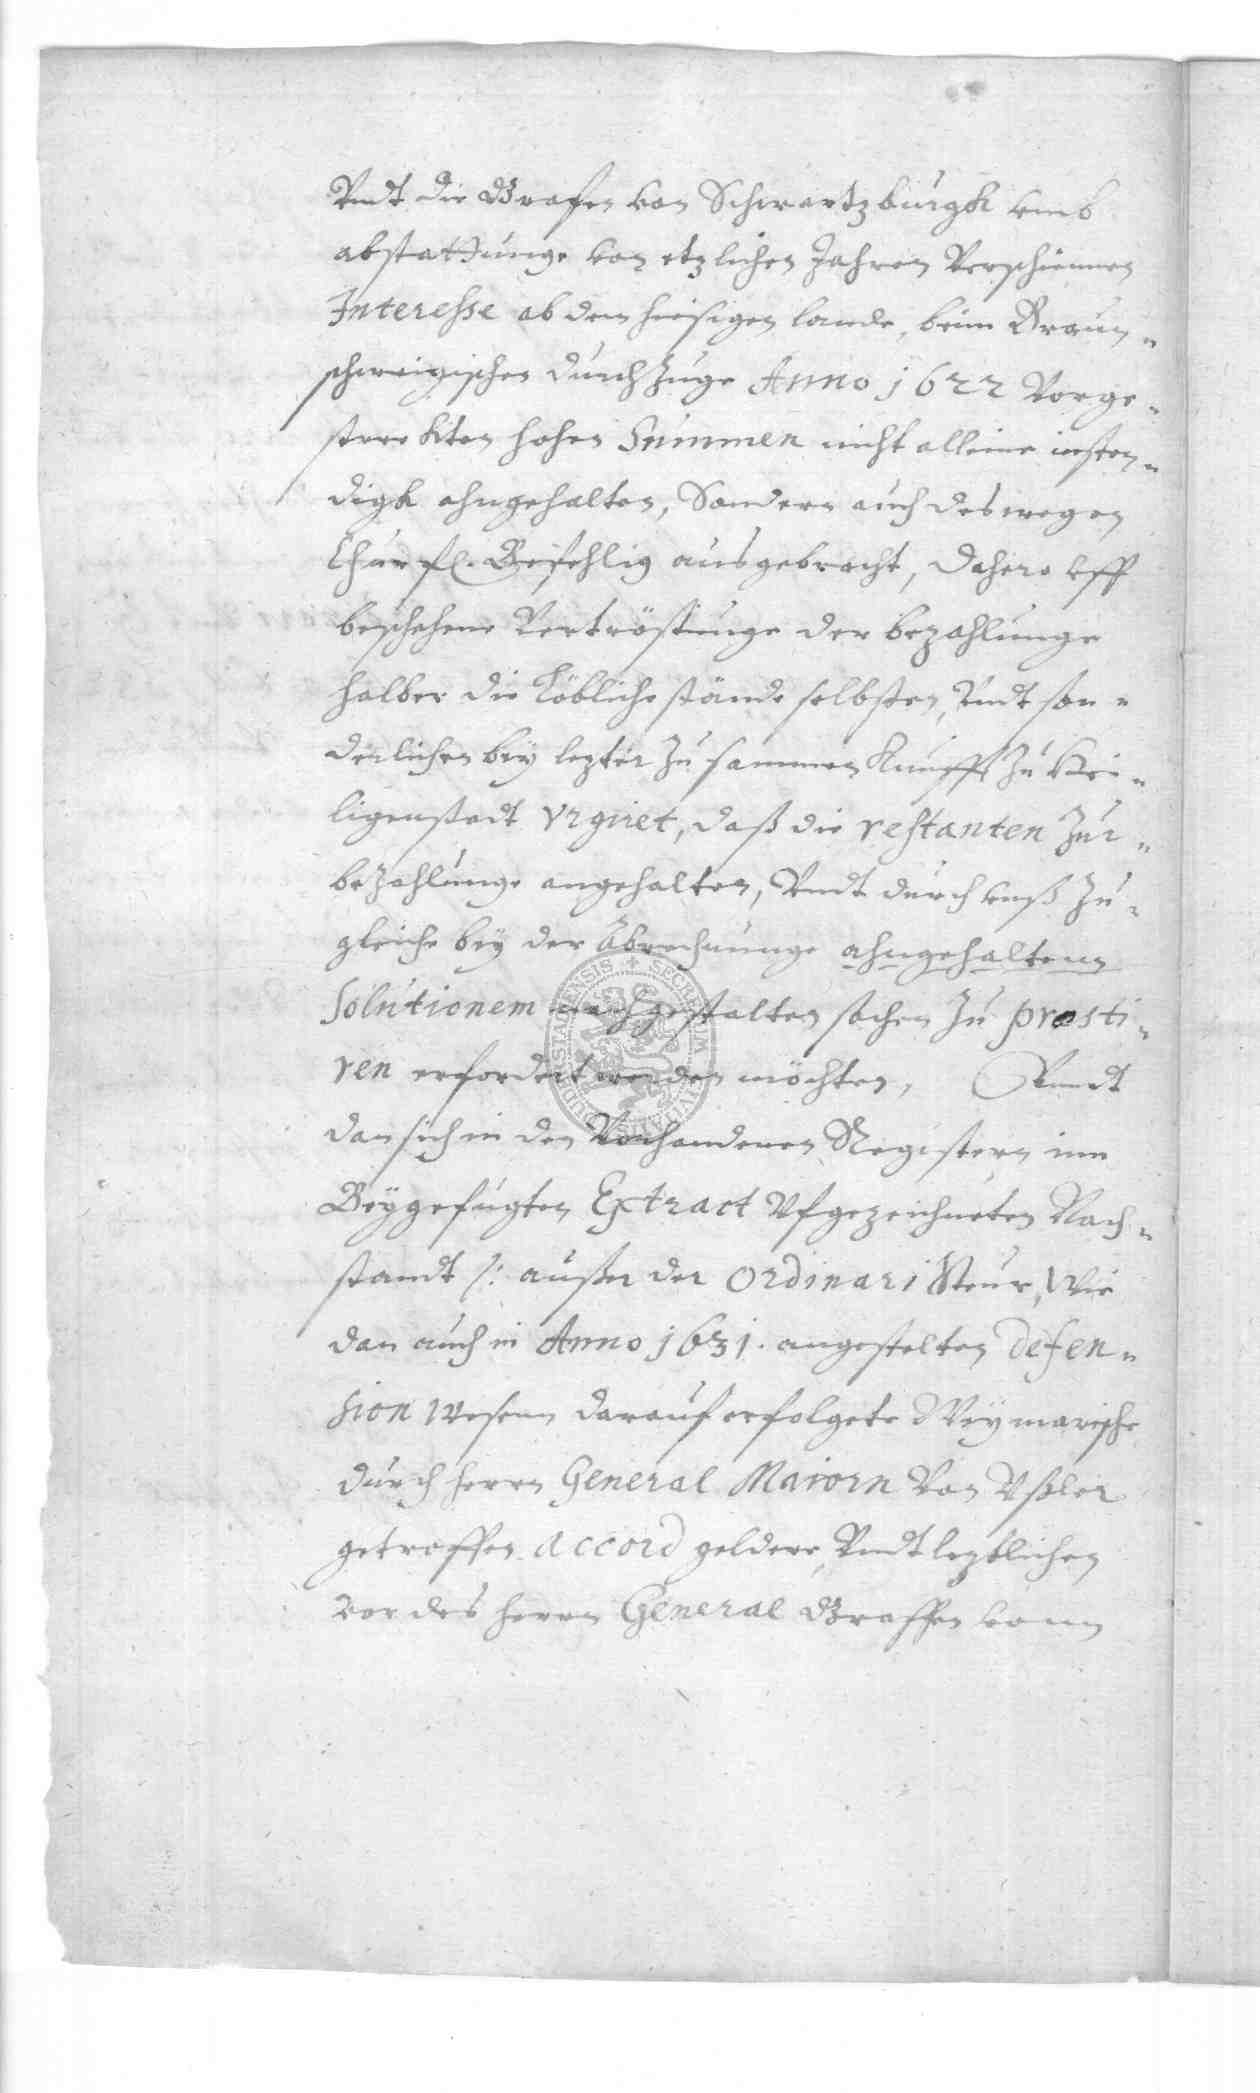 Vndt die Grafen von Schwartzburgk vmb
abstattunge von etzlichen Jahren Verschienen
Interesse ab dem hiesigen lande, beim Braun-
schweigischen durchzuge Anno 1622 Vorge-
streckten hohen Summen nicht alleine insten-
digk ahngehalten, Sondern auch deswegen
Churfl. Befehlig ausgebracht, dahero vff
beschehene Vertröstunge der bezahlunge
halber die Löbliche stände selbsten, Vndt son-
derlichen bey lezter zusammen Kunfft zu Hei-
ligenstadt vrgiret, daß die restanten Zur
bezahlunge angehalten, Vndt durch vnß zu-
gleiche bey der Abrechnunge ahngehaltene
Solutionem nachgestalten sachen zu præsti-
ren erfordert werden möchten, Vundt
dan sich in den Vorhandenen Registern inn
Beygefügten Extract Vfgezeichneten Nach-
standt /: außer der Ordinari Steur, Wie
dan auch in Anno 1631. angestelten Defen-
sion Wesenn darauf erfolgete Weymarische
durch herrn General Maiorn Von Vßler
getroffen Accord geldere, Vndt lezblichen
vor des herrn General Graffen vonn
SECRETUM CIVITATIS DUDERSTADENSIS